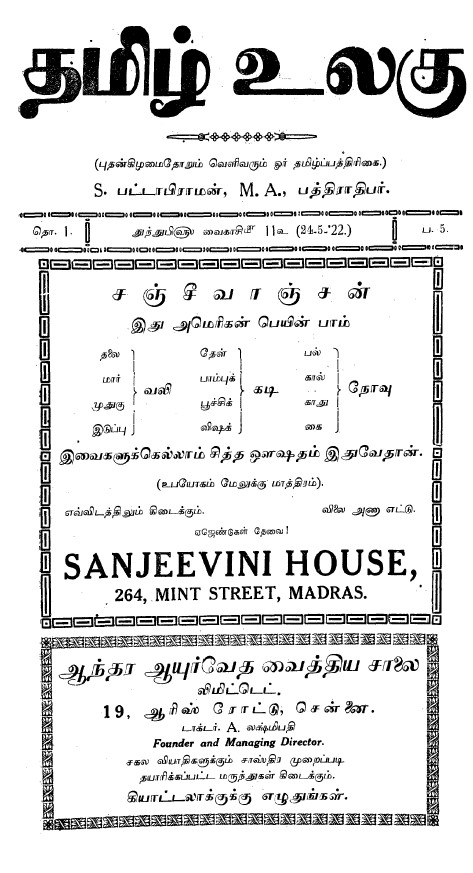 தமிழ் உலகு
(புதன்கிழமைதோறும் வெளிவரும் ஓர் தமிழ்ப்பத்திரிகை.)
S. பட்டாபிராமன், M. A., பத்திராதிபர்.
தொ. 1. துந்துபி௵ வைகாசி௴ 11௳ (24-5-'22.) ப. 5.
சஞ்சீவாஞ்சன்
இது அமெரிகன் பெயின் பாம்
தலை
மார்
முதுகு
இடுப்பு
வலி
தேள்
பாம்புக்
பூச்சிக்
விஷக்
கடி
பல்
கால்
காது
கை
நோவு
இவைகளுக்கெல்லாம் சித்த ஔஷதம் இதுவேதான்.
(உபயோகம் மேலுக்கு மாத்திரம்).
எவ்விடத்திலும் கிடைக்கும். விலை அணா எட்டு.
ஏஜெண்டுகள் தேவை!
SANJEEVINI HOUSE,
264, MINT STREET, MADRAS.
ஆந்தர ஆயுர்வேத வைத்திய சாலை
லிமிட்டெட்.
19, ஆரிஸ் ரோட்டு, சென்னை.
டாக்டர். A. லக்ஷ்மிபதி
Founder and Managing Director.
சகல வியாதிகளுக்கும் சாஸ்திர முறைப்படி
தயாரிக்கப்பட்ட மருந்துகள் கிடைக்கும்.
கியாட்டலாக்குக்கு எழுதுங்கள்.